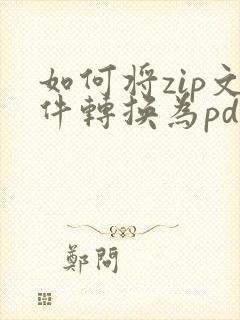 如何將zip文
件轉換為pd
鄭問